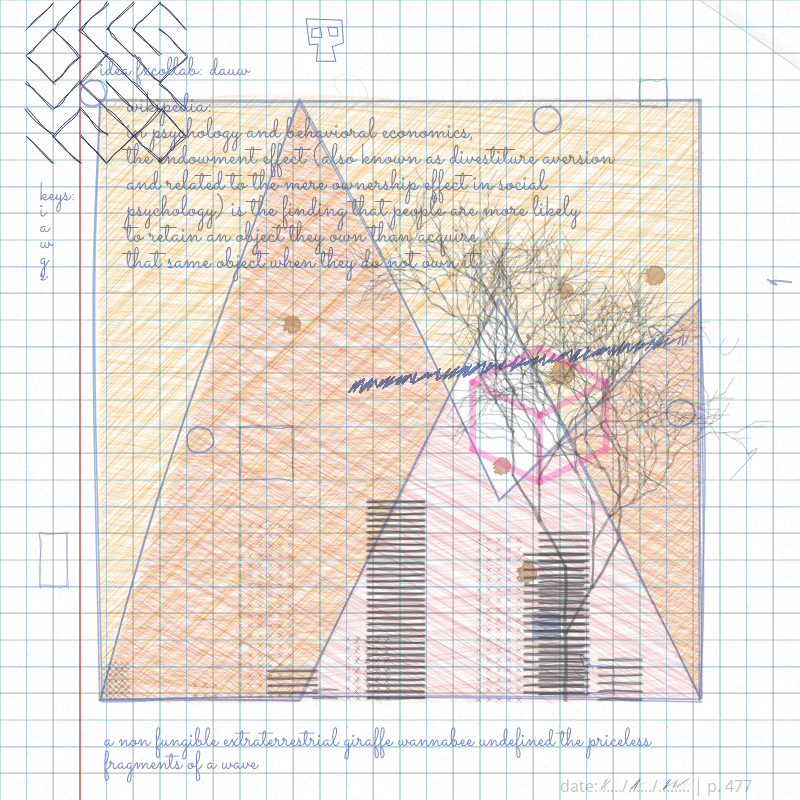 idea fxcollab: dauw
wikipedia:
in psychology and behavioral economics,
the endowment effect (also known as divestiture aversion
and related to the mere ownership effect in social
psychology) is the finding that people are more likely
to retain an object they own than acquire
that same object when they do not own it.
keys:
i
a
w
g
s
a non fungible extraterrestrial giraffe wannabee undefined the priceless
fragments of a wave
date:...../...../........ | p. 477